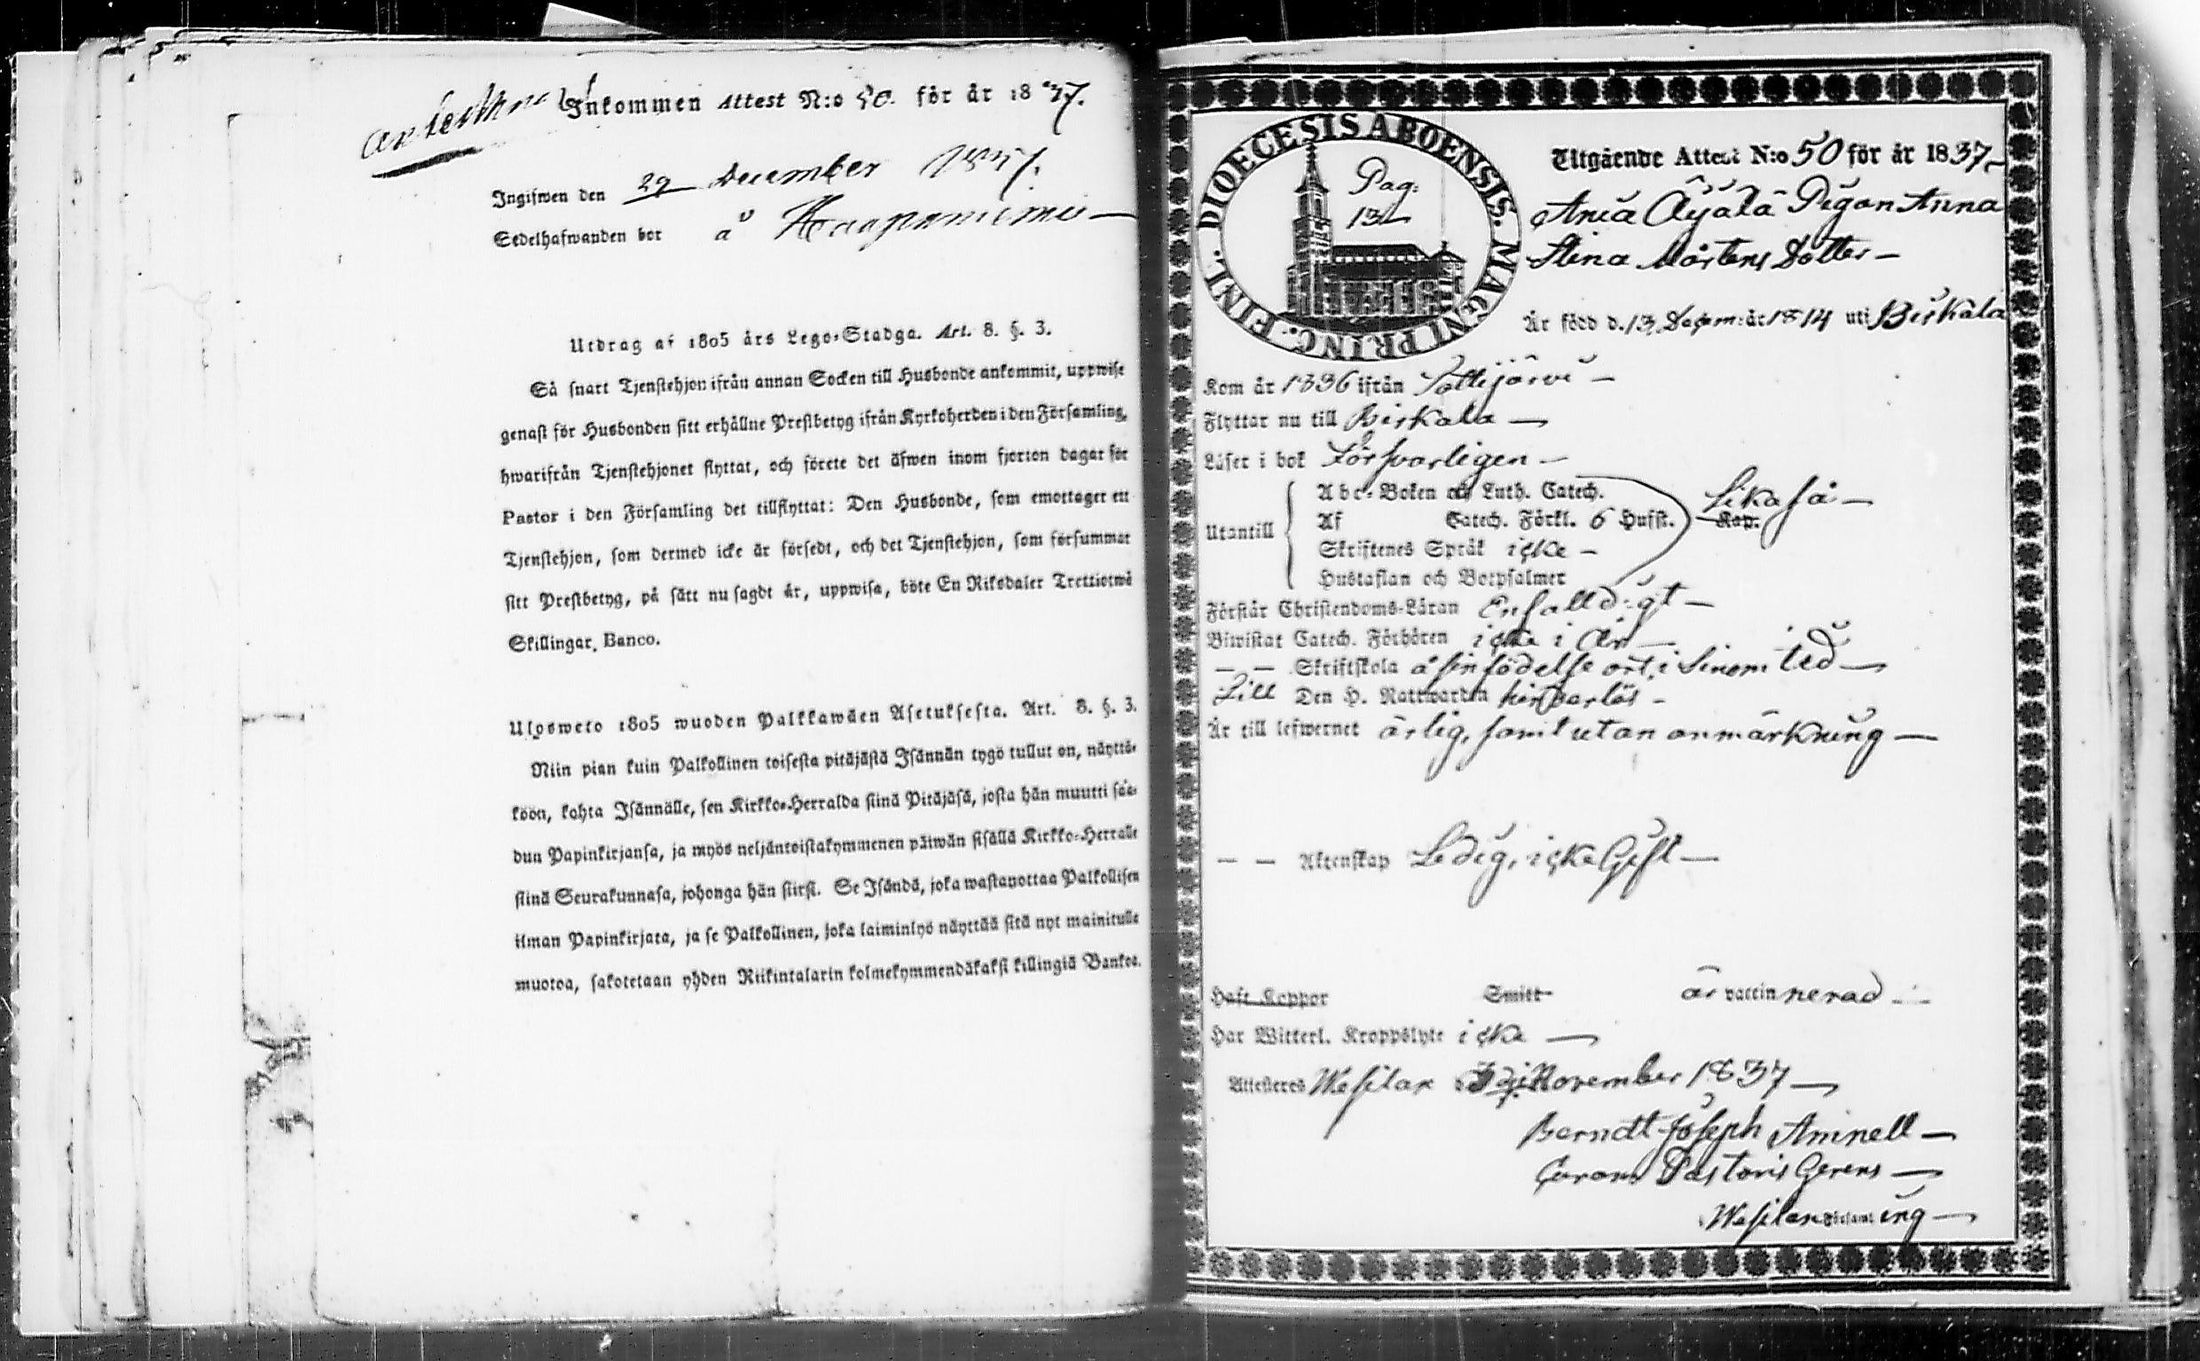 Inkommen Attest N:o 50. för år 1837.
Ingifwen den 29 December 1837.
Sedelhafwanden bor å Haapaniemi
Utdrag af 1805 års Lego-Stadga. Art. 8. §. 3.
Så snart Tjenstehjon ifrån annan Socken till Husbonde ankommit, uppwise
genast för Husbonden sitt erhållne Prestbetyg ifrån Kyrkoherden i den Församling,
hwarifrån Tjenstehjonet flyttat, och förete det äfwen inom fjorton dagar för
Pastor i den Församling det tillflyttat: Den Husbonde, som emottager ett
Tjenstehjon, som dermed icke är försedt, och det Tjenstehjon, som försummar
sitt Prestbetyg, på sätt nu sagdt är, uppwisa, böte En Riksdaler Trettiotwå
Skillingar Banco.
Ulosweto 1805 wuoden Palkkawäen Asetuksesta. Art. 8. §. 3.
Niin pian kuin Palkollinen toisesta pitäjästä Isännän tygö tullut on, näyttä-
köön, kohta Isännälle, sen Kirkko-Herralda siinä Pitäjäsä, josta hän muutti saa-
dun Papinkirjansa, ja myös neljäntoistakymmenen päiwän sisällä Kirkko-Herralle
siinä Seurakunnasa, johonga hän siirsi. Se Isändä, joka wastanottaa Palkollisen
ilman Papinkirjata, ja se Palkollinen, joka laiminlyö näyttää sitä nyt mainitulle
muotoa, sakotetaan yhden Riikintalarin kolmekymmendäkaksi killingiä Bankos.
DIOECESIS ABOENSIS. MAGNI PRINC. FINL.
Pag.
131
Utgående Attest N:o 50 för år 1837
Äijälä Pigan Anna
Stina Mårtens Dotter
Är född d. 13 Decem: år 1814 uti Birkala
Kom år 1836 ifrån Tottijärvi
Flyttar nu till Birkala
Läser i bok Försvarligen
Utantill
Abc-Boken och Luth. Catech.
Af Catech. Förkl. 6 Hufst. Kap.
Likaså
Skriftenes Språk icke
Hustaflan och Botpsalmer
Förstår Christendoms-Läran Enfalldigt
Biwistat Catech. Förhören icke i År
Skriftskola å sin födelse ort, i Sinom tid
Till Den H. Nattwarden hinderlös
Är till lefwernet ärlig, samt utan anmärkning
Äktenskap Ledig, icke Gift
Haft Koppor Smitt är vaccinnerad
Har Witterl. Kroppslyte icke
Attesteres Wesilax November 1837
Berndt Joseph Aminell
Curam Pastoris Gerens
Wesilax Församling